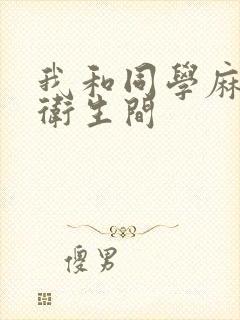 我和同學麻
衛生間
傻男